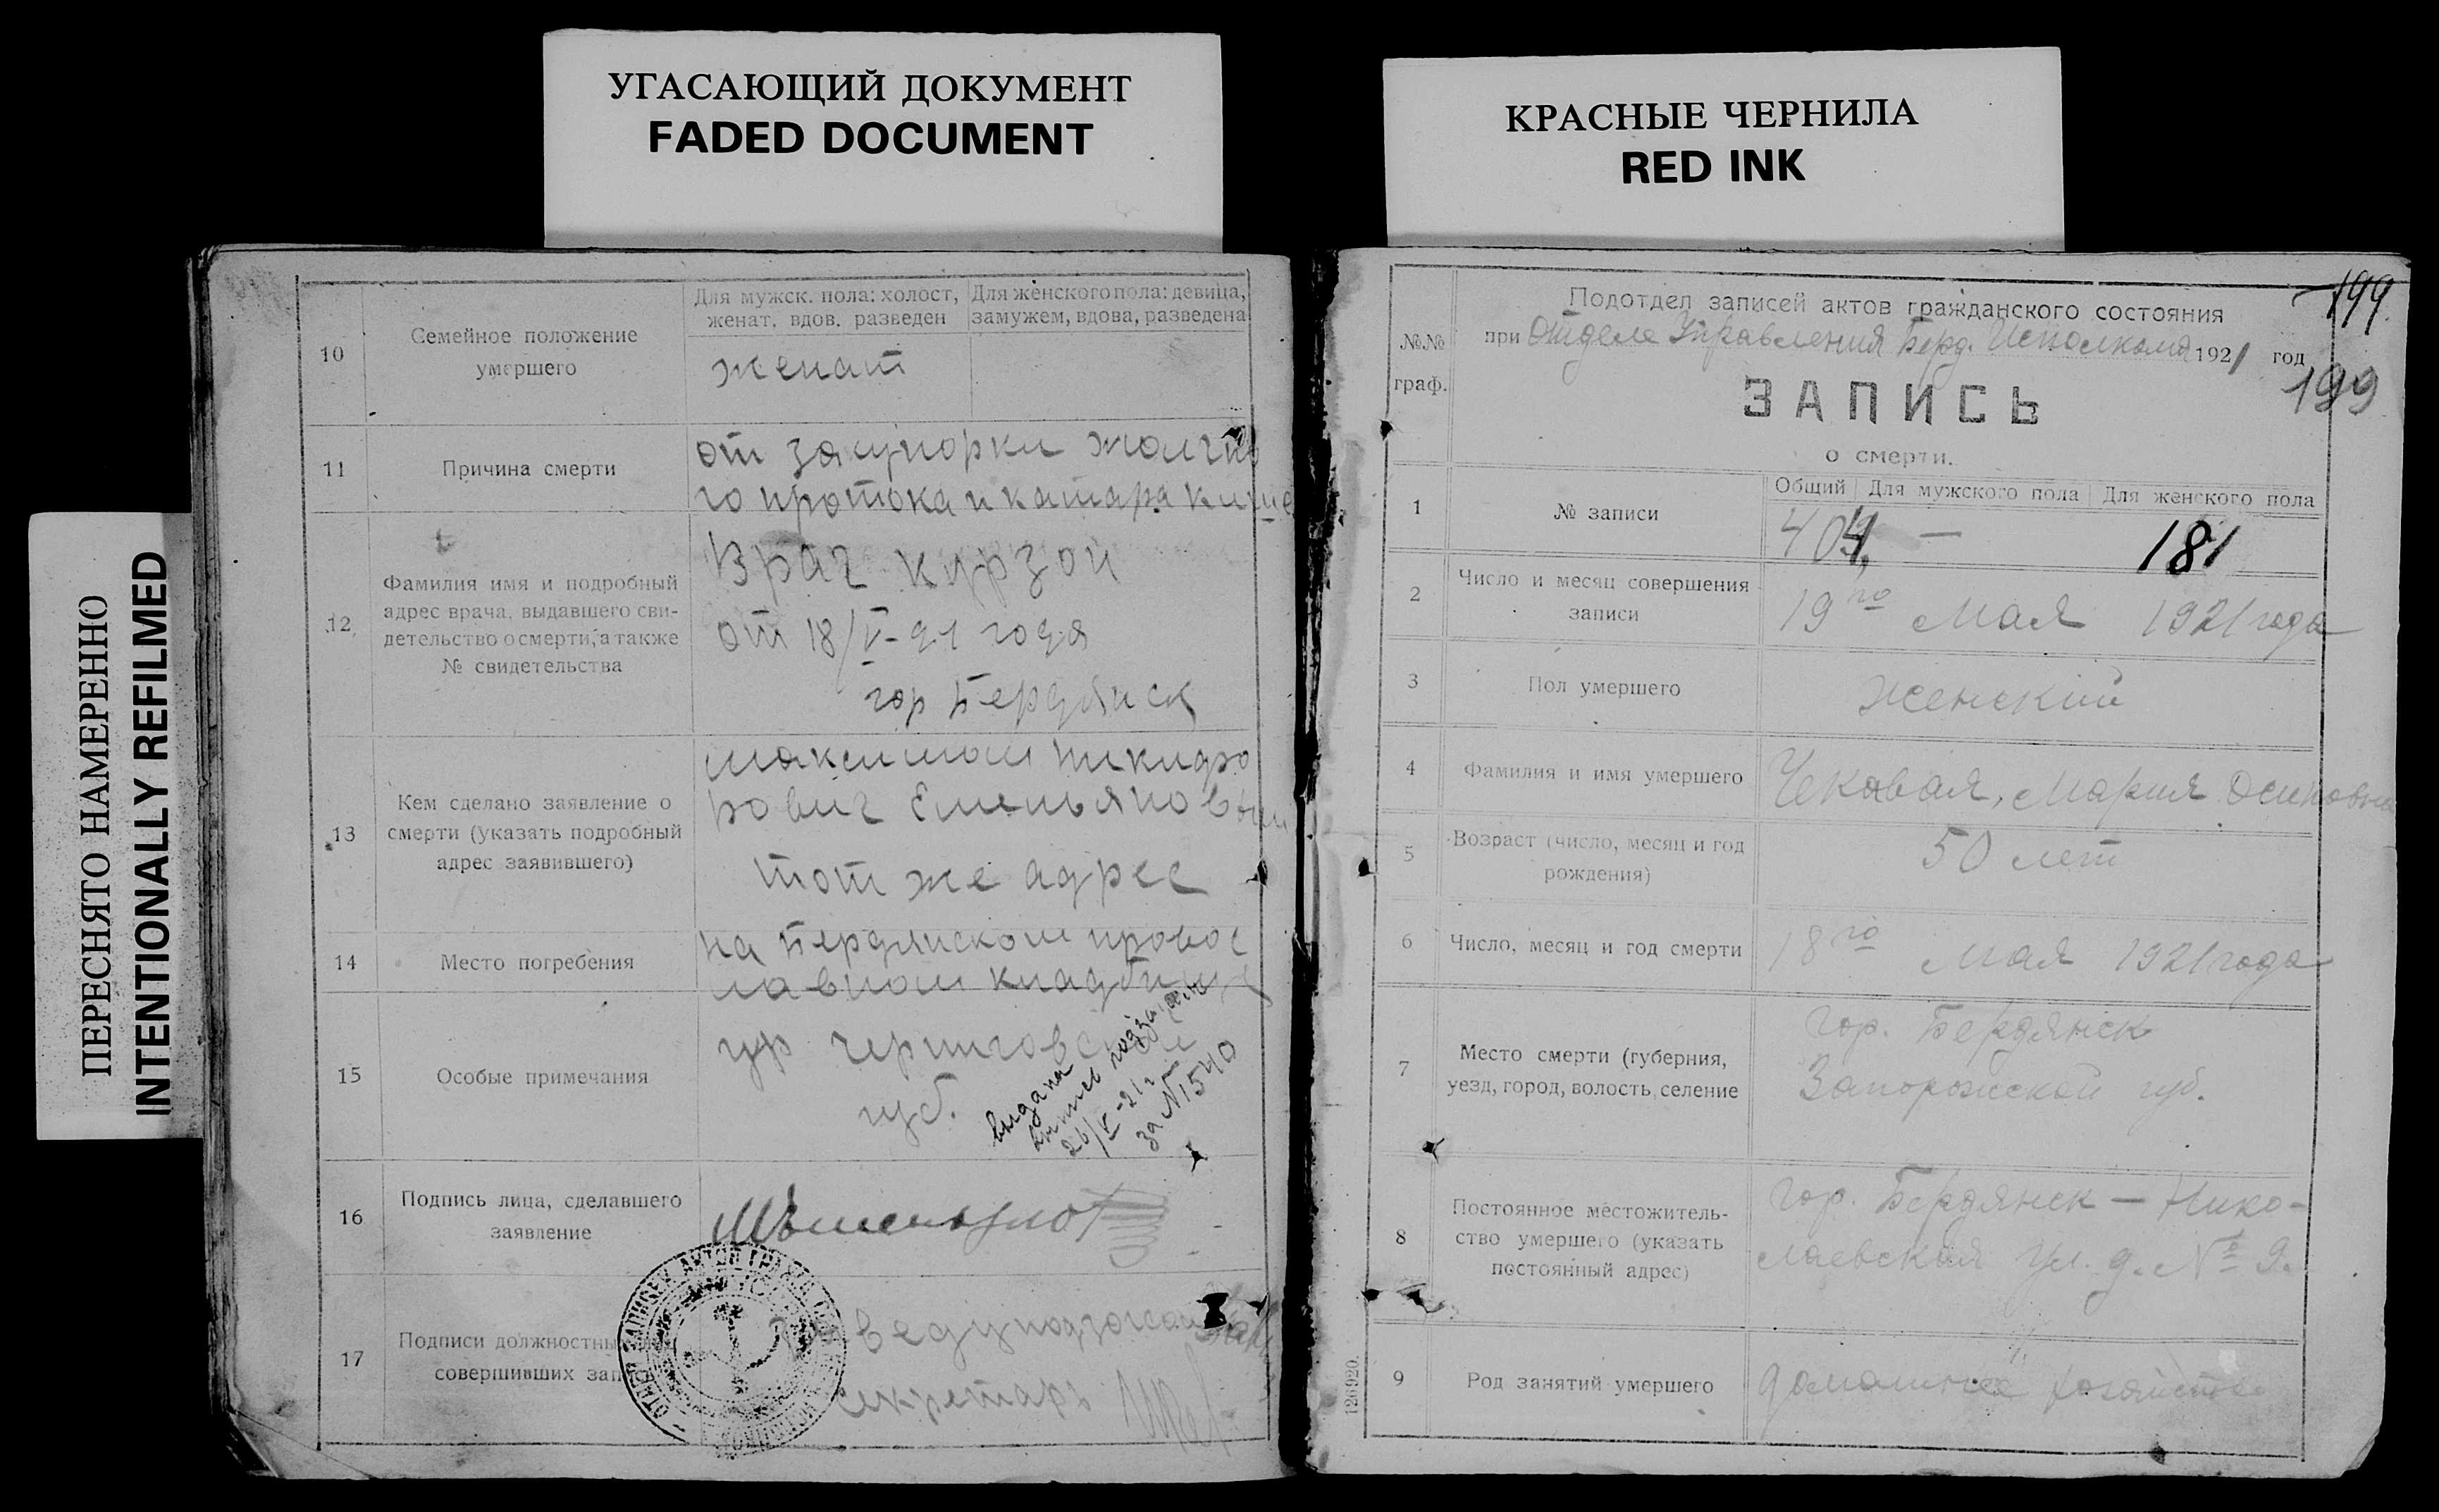 УГАСАЮЩИЙ ДОКУМЕНТ
FADED DOCUMENT
КРАСНЫЕ ЧЕРНИЛА
RED INK
ПЕРЕСНЯТО НАМЕРЕННО
INTENTIONALLY REFILMED
10
Семейное положение
умершего
Для мужск. пола: холост,
женат, вдов, разведен
Для женского пола: девица,
замужем, вдова, разведена
женат
11
Причина смерти
от закупорки жолчно
го протока и катара кише
12
Фамилия имя и подробный
адрес врача, выдавшего сви-
детельство о смерти, а также
№ свидетельства
Врач Курзон
от 18/V-21 года
гор Бердянск
13
Кем сделано заявление о
смерти (указать подробный
адрес заявившего)
максимом никифо
рович Емельяновым
тот же адрес
14
Место погребения
на Бердянском правос
лавном кладбище
15
Особые примечания
ур черниговской
губ.
выдана
выпись
26/V-21 г
за №1540
16
Подпись лица, сделавшего
заявление
17
Подписи должностных
совершивших зап
секретарь
199
199
№№
граф.
Подотдел записей актов гражданского состояния
при Отделе Управления Берд. Исполкома 1921 год
ЗАПИСЬ
о смерти.
1
№ записи
Общий
Для мужского пола
Для женского пола
404 — 181
2
Число и месяц совершения
записи
19го Мая 1921 года
3
Пол умершего
Женский
4
Фамилия и имя умершего
Чекавая, Мария Осиповна
5
Возраст (число, месяц и год
рождения)
50 лет
6
Число, месяц и год смерти
18го Мая 1921 года
7
Место смерти (губерния,
уезд, город, волость, селение
гор. Бердянск
Запорожской губ.
8
Постоянное местожитель-
ство умершего (указать
постоянный адрес)
гор. Бердянск — Нико-
лаевская ул. д. № 9.
9
Род занятий умершего
домашнее хозяйство
126920.